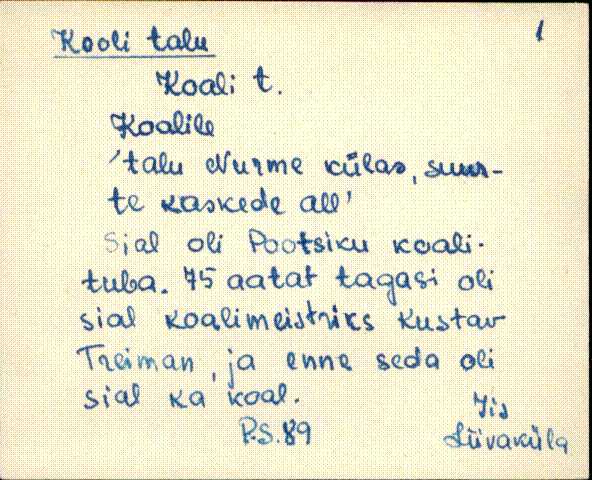 1
Kooli talu
Koali t.
Koalile
'talu Nurme külas, suur-
te kaskede all'
Sial oli Pootsiku koali-
tuba. 75 aatat tagasi oli
sial koalimeistriks Kustav
Treiman, ja enne seda oli
sial ka koal.
Jis
P.S. 89
Liivaküla